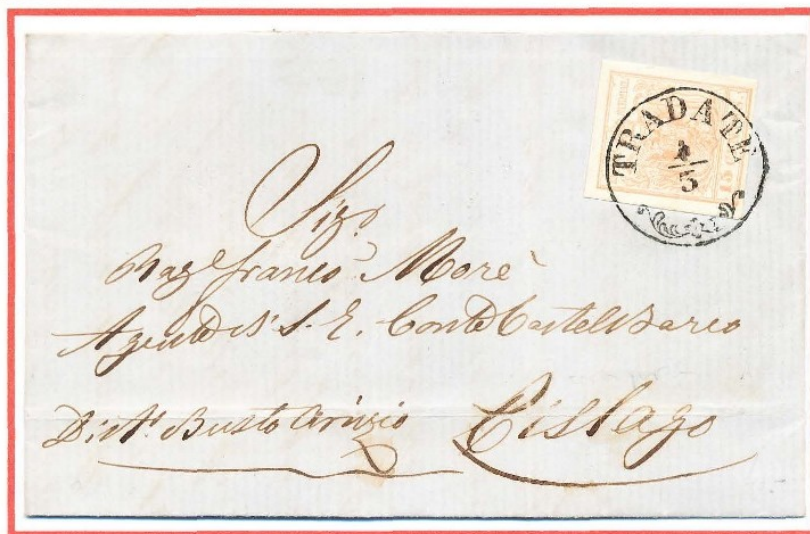 TRADATE
1/5
15
Sigr.
Rage. Franco. Morè
Agente di S. E. Conte Castelbarco
Distto. Busto Arsizio Cislago